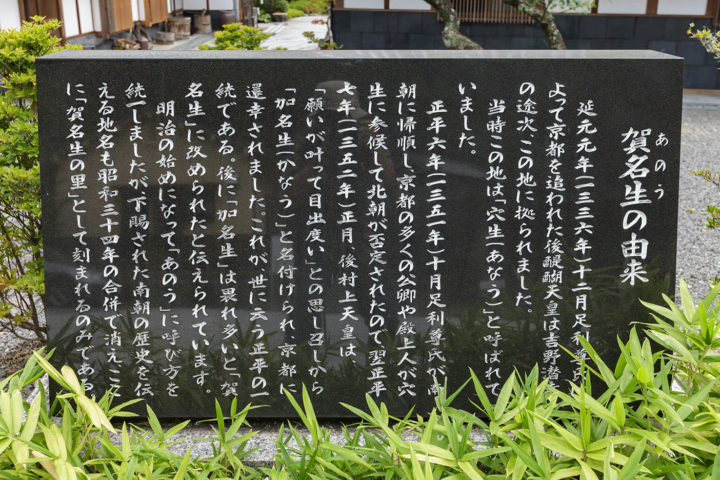 あのう
賀名生の由来
延元元年(一三三六年)十二月足利尊
よって京都を追われた後醍醐天皇は吉野潜
の途次、この地に拠られました。
当時この地は「穴生(あなう)」と呼ばれて
いました。
正平六年(一三五一年)十月足利尊氏が南
朝に帰順し、京都の多くの公卿や殿上人が穴
生に参候して北朝が否定されたので翌正平
七年(一三五二年)正月、後村上天皇は、
「願いが叶って目出度い」との思し召しから
「加名生(かなう)」と名付けられ、京都に
還幸されました。これが、世に云う正平の一
統である。後に「加名生」は畏れ多いと、賀
名生」に改められたと伝えられています。
明治の始めになって「あのう」に呼び方を
統一しましたが下賜された南朝の歴史を伝
える地名も昭和三十四年の合併で消え、ここ
に「賀名生の里」として刻まれるのみである